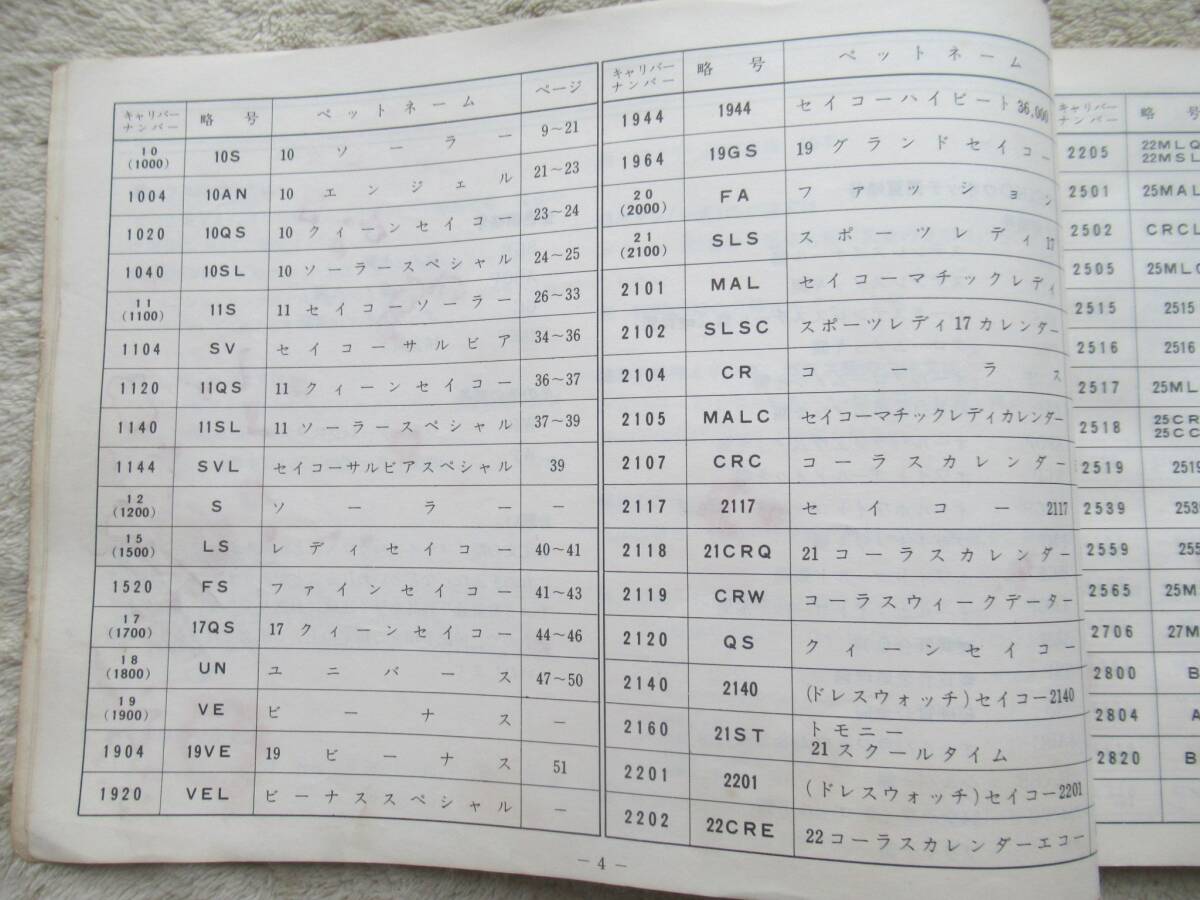 キャリバーナンバー 略号 ペットネーム ページ
10(1000) 10S 10 ソーラー 9~21
1004 10AN 10 エンジェル 21~23
1020 10QS 10 クィーンセイコー 23~24
1040 10SL 10 ソーラースペシャル 24~25
11(1100) 11S 11 セイコーソーラー 26~33
1104 SV セイコーサルビア 34~36
1120 11QS 11 クィーンセイコー 36~37
1140 11SL 11 ソーラースペシャル 37~39
1144 SVL セイコーサルビアスペシャル 39
12(1200) S ソーラー ―
15(1500) LS レディセイコー 40~41
1520 FS ファインセイコー 41~43
17(1700) 17QS 17 クィーンセイコー 44~46
18(1800) UN ユニバース 47~50
19(1900) VE ビーナス ―
1904 19VE 19 ビーナス 51
1920 VEL ビーナススペシャル ―
キャリバーナンバー 略号 ペットネーム
1944 1944 セイコーハイビート36,000
1964 19GS 19グランドセイコー
20(2000) FA ファッション
21(2100) SLS スポーツレディ17
2101 MAL セイコーマチックレディ
2102 SLSC スポーツレディ17カレンダー
2104 CR コーラス
2105 MALC セイコーマチックレディカレンダー
2107 CRC コーラスカレンダー
2117 2117 セイコー2117
2118 21CRQ 21コーラスカレンダー
2119 CRW コーラスウィークデーター
2120 QS クィーンセイコー
2140 2140 (ドレスウォッチ)セイコー2140
2160 21ST トモニー
21スクールタイム
2201 2201 (ドレスウォッチ)セイコー2201
2202 22CRE 22コーラスカレンダーエコー
-4-
キャリバーナンバー 略号
2205 22MLQ
22MSL
2501 25MAL
2502 CRCL
2505 25MLC
2515 2515
2516 2516
2517 25ML
2518 25CR
25CC
2519 2519
2539 2539
2559 255
2565 25M
2706 27M
2800 B
2804 A
2820 B